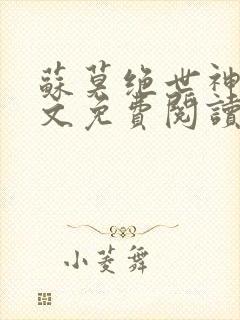 蘇莫绝世神
文免費閱讀
小菱舞